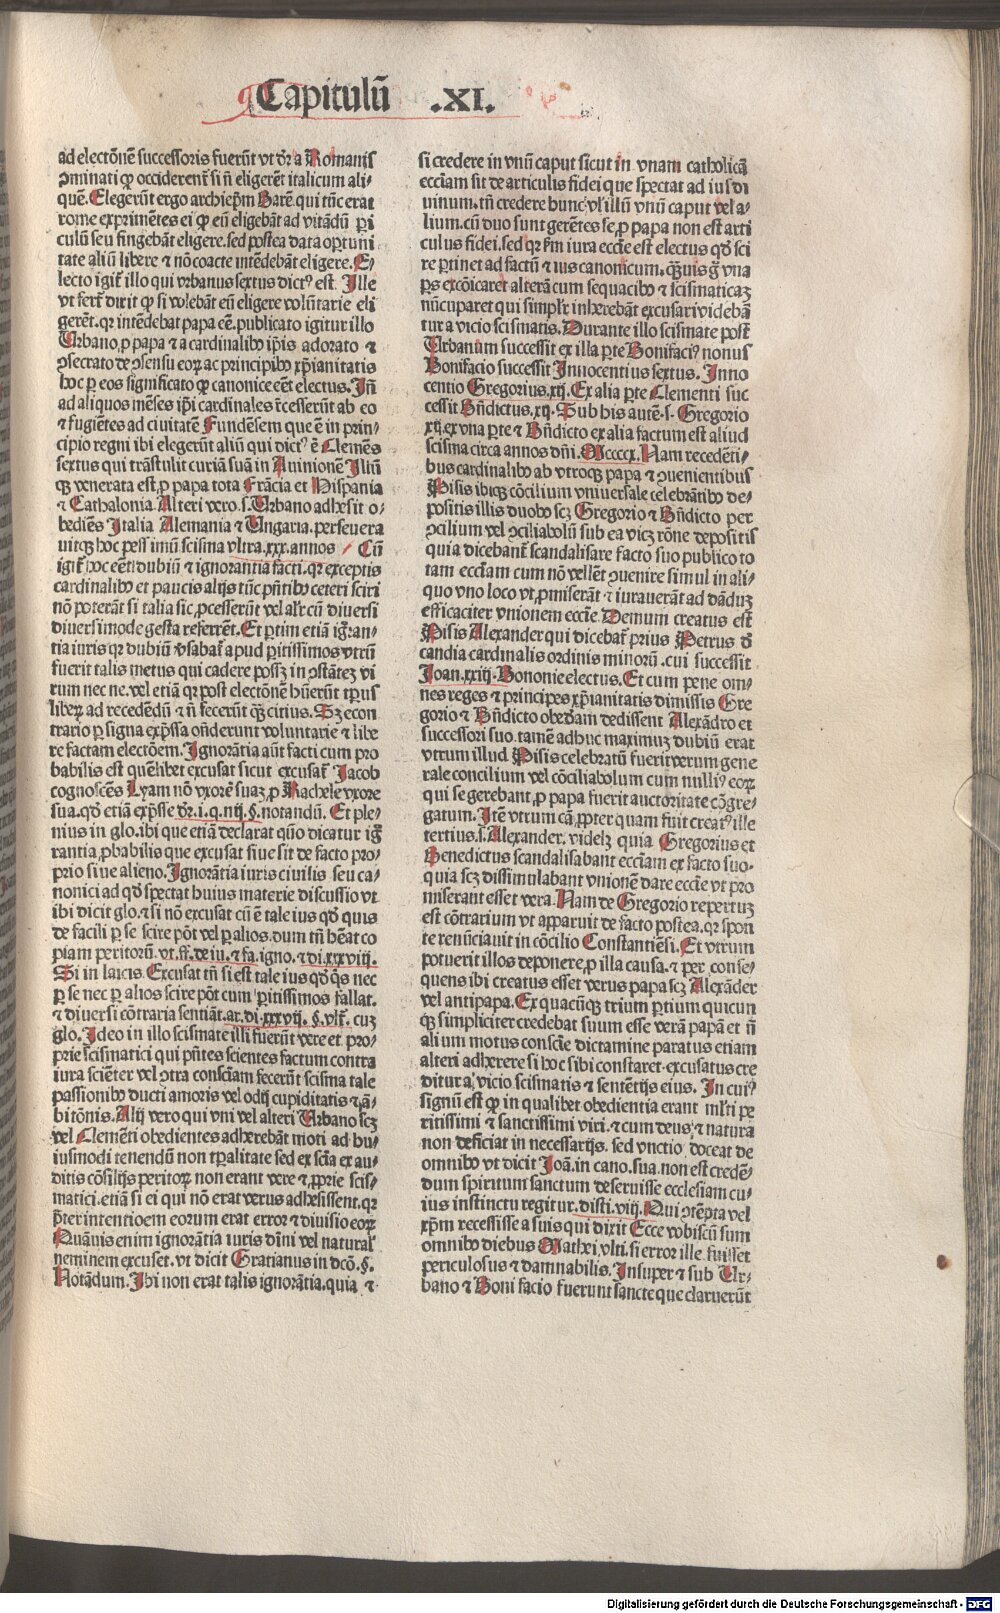 Capitulū .XI.
ad electōnē successoris fuerūt vt dr̄ a Romanis
ꝯminati ꝙ occiderent̄ si n̄ eligerēt italicum ali-
quē. Elegerūt ergo archiep̄m Barē. qui tūc erat
rome exprimētes ei ꝙ eū eligebāt ad vitādū ꝑi
culū seu fingebāt eligere. sed postea data oꝑtuni
tate aliū libere ⁊ nō coacte intēdebāt eligere. E-
lecto igit̄ illo qui vrbanus sextus dictꝰ est. Ille
vt fert̄ dixit ꝙ si volebāt eū eligere volūtarie eli
gerēt. qꝛ intēdebat papa eē. publicato igitur illo
Urbano ꝓ papa ⁊ a cardinalibꝰ ip̄is adorato ⁊
ꝯsecrato de ꝯsensu eoꝝ ac principibꝰ xp̄ianitatis
hoc ꝑ eos significato ꝙ canonice eēt electus. In̄
ad aliquos mēses ip̄i cardinales r̄cesserūt ab eo
⁊ fugiētes ad ciuitatē Fundēsem que ē in prin-
cipio regni ibi elegerūt aliū qui dictꝰ ē Clemēs
sextus qui trāstulit curiā suā in Auinionē Illū
qꝫ venerata est ꝓ papa tota Frācia et Hispania
⁊ Cathalonia. Alteri vero .s. Urbano adhesit o-
bediēs Italia Alemania ⁊ Ungaria. perseuera
uitqꝫ hoc pessimū scisma vltra .xxx. annos Cū
igit̄ hoc eēt dubiū ⁊ ignorantia facti. qꝛ exceptis
cardinalibꝰ et paucis alijs tūc pn̄tibꝰ ceteri sciri
nō poterāt si talia sic ꝓcesserūt vel alr̄ cū diuersi
diuersimode gesta referrēt. Et ꝑtim etiā igr̄an-
tia iuris qꝛ dubiū vsabat̄ apud peritissimos vtrū
fuerit talis metus qui cadere possꝫ in ꝯstātē vi
rum nec ne. vel etiā qꝛ post electōnē hūerūt tp̄us
liberꝝ ad recedēdū ⁊ n̄ fecerūt qꝫ citius. Sꝫ econ
trario ꝑ signa exp̄ssa oñderunt voluntarie ⁊ libe
re factam electōem. Ignorātia aūt facti cum pro
babilis est quēlibet excusat sicut excusat̄ Jacob
cognoscēs Lyam nō vxorē suaꝫ ꝓ Rachele vxore
sua. qd̄ etiā exp̄sse dr̄ .i. q. iiij. §. notandū. Et ple-
nius in glo. ibi que etiā declarat quō dicatur igr̄
rantia ꝓbabilis que excusat siue sit de facto pro-
prio siue alieno. Ignorātia iuris ciuilis seu ca-
nonici ad qd̄ spectat huius materie discussio vt
ibi dicit glo. ⁊ si nō excusat cū ē tale ius qd̄ quis
de facili ꝑ se scire pōt vel ꝑ alios. dum tn̄ hēat co
piam peritorū. vt. ff. de iu. ⁊ fa. igno. ⁊ di. xxxviij.
Si in laicis. Excusat tn̄ si est tale ius qd̄ qs nec
ꝑ se nec ꝑ alios scire pōt cum ꝑitissimos fallat.
⁊ diuersi cōtraria sentiāt. ar. di. xxxvij. §. vlt̄. cuꝫ
glo. Ideo in illo scismate illi fuerūt vere et pro-
prie scismatici qui pn̄tes scientes factum contra
iura sciēter vel ꝯtra consciam fecerūt scisma tale
passionibꝰ ducti amoris vel odij cupiditatis ⁊ ā-
bitōnis. Alij vero qui vni vel alteri Urbano scꝫ
vel Clemēti obedientes adherebāt moti ad hu-
iusmodi tenendū non tꝑalitate sed ex sciā ex au-
ditis cōsilijs peritoꝝ non erant vere ⁊ ꝓprie scis-
matici. etiā si ei qui nō erat verus adhesissent. qꝛ
p̄ter intentioem eorum erat error ⁊ diuisio eoꝝ
Quāuis enim ignorātia iuris diuini vel natural̄
neminem excuset. vt dicit Gratianus in dcō. §.
Notādum. Ibi non erat talis ignorātia. quia ⁊
si credere in vnū caput sicut in vnam catholicā
eccl̄iam sit de articulis fidei que spectat ad ius di
uinum. tn̄ credere hunc vl̓ illū vnū caput vel a-
lium. cū duo sunt gerētes se ꝓ papa non est arti
culus fidei. sed qꝛ fm̄ iura eccl̄ie est electus qd̄ sci
re ꝑtinet ad factū ⁊ ius canonicum. qꝫuis g̊ vna
ꝑs excōicaret alterā cum sequacibꝰ ⁊ scismaticaꝫ
nūcuparet qui simpl̓r inherebāt excusari videbā
tur a vicio scismatis. Durante illo scismate post̄
Urbanum successit ex illa ꝑte Bonifaciꝰ nonus
Bonifacio successit Innocentius sextus. Inno
centio Gregorius .xij. Ex alia ꝑte Clementi suc
cessit Bn̄dictus .xij. Sub his autē .s. Gregorio
xij. ex vna ꝑte ⁊ Bn̄dicto ex alia factum est aliud
scisma circa annos dn̄i. Mccccx. Nam recedēti-
bus cardinalibꝰ ab vtroqꝫ papa ⁊ ꝯuenientibus
Pisis ibiqꝫ cōcilium vniuersale celebrātibꝰ de-
positis illis duobꝰ scꝫ Gregorio ⁊ Bn̄dicto per
ꝯcilium vel ꝯciliabolū sub ea vicꝫ rōne depositis
quia dicebant̄ scandalisare facto suo publico to
tam eccl̄iam cum nō vellēt ꝯuenire simul in ali-
quo vno loco vt ꝓmiserāt ⁊ iurauerāt ad dāduꝫ
efficaciter vnionem eccl̄ie. Demum creatus est
Pisis Alexander qui dicebat̄ prius Petrus d̄
candia cardinalis ordinis minorū. cui successit
Joan. xxiij. Bononie electus. Et cum pene om-
nes reges ⁊ principes xp̄ianitatis dimissis Gre
gorio ⁊ Bn̄dicto obediam dedissent Alexādro et
successori suo. tamē adhuc maximuꝫ dubiū erat
vtrum illud Pisis celebratū fuerit verum gene
rale concilium vel cōciliabolum cum nulliꝰ eoꝝ
qui se gerebant ꝓ papa fuerit auctoritate cōgre-
gatum. Itē vtrum cā ꝓpter quam fuit creatꝰ ille
tertius .s. Alexander. videlꝫ quia Gregorius et
Benedictus scandalisabant eccl̄iam ex facto suo.
quia scꝫ dissimulabant vnionē dare eccl̄ie vt pro
miserant esset vera. Nam de Gregorio repertuꝫ
est cōtrarium vt apparuit de facto postea. qꝛ spon
te renūciauit in cōcilio Constantiēsi. Et vtrum
potuerit illos deponere ꝓ illa causa. ⁊ per conse-
quens ibi creatus esset verus papa scꝫ Alexāder
vel antipapa. Ex quacūqꝫ trium ꝑtium quicun
qꝫ simpliciter credebat suum esse verū papā et n̄
alium motus consciē dictamine paratus etiam
alteri adherere si hoc sibi constaret. excusatus cre
ditur a vicio scismatis ⁊ sententijs eius. In cuiꝰ
signū est ꝙ in qualibet obedientia erant ml̓ti pe
ritissimi ⁊ sanctissimi viri. ⁊ cum deus ⁊ natura
non deficiat in necessarijs. sed vnctio doceat de
omnibꝰ vt dicit Joā. in cano. sua. non est credē-
dum spiritum sanctum deseruisse ecclesiam cu-
ius instinctu regitur. disti. viij. Qui ꝯtēpta vel
xp̄m recessisse a suis qui dixit Ecce vobiscū sum
omnibꝰ diebus Mathei vlti. si error ille fuisset
periculosus ⁊ damnabilis. Insuper ⁊ sub Ur-
bano ⁊ Bonifacio fuerunt sancte que claruerūt
Digitalisierung gefördert durch die Deutsche Forschungsgemeinschaft - DFG